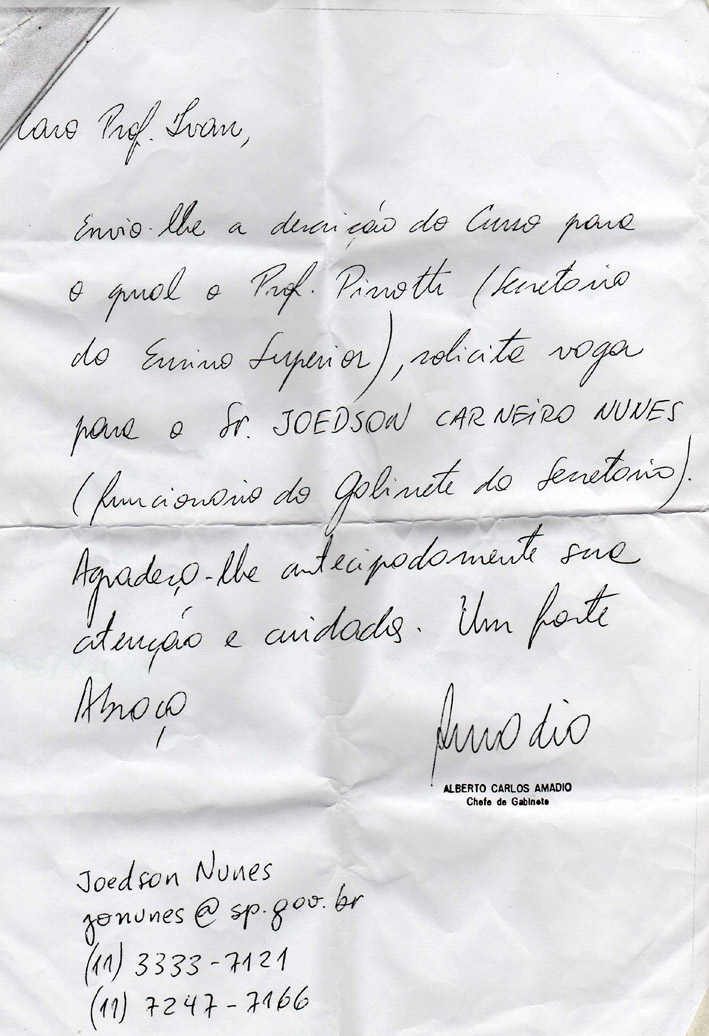 Caro Prof. Ivan,
Envio-lhe a descrição do Curso para
o qual o Prof. Pinotti (Secretario
do Ensino Superior), solicita vaga
para o Sr. JOEDSON CARNEIRO NUNES
(funcionario do Gabinete do Secretario).
Agradeço-lhe antecipadamente sua
atenção e cuidados. Um forte
Abraço
Amadio
ALBERTO CARLOS AMADIO
Chefe de Gabinete
Joedson Nunes
jonunes@sp.gov.br
(11) 3333-7121
(11) 7247-7166